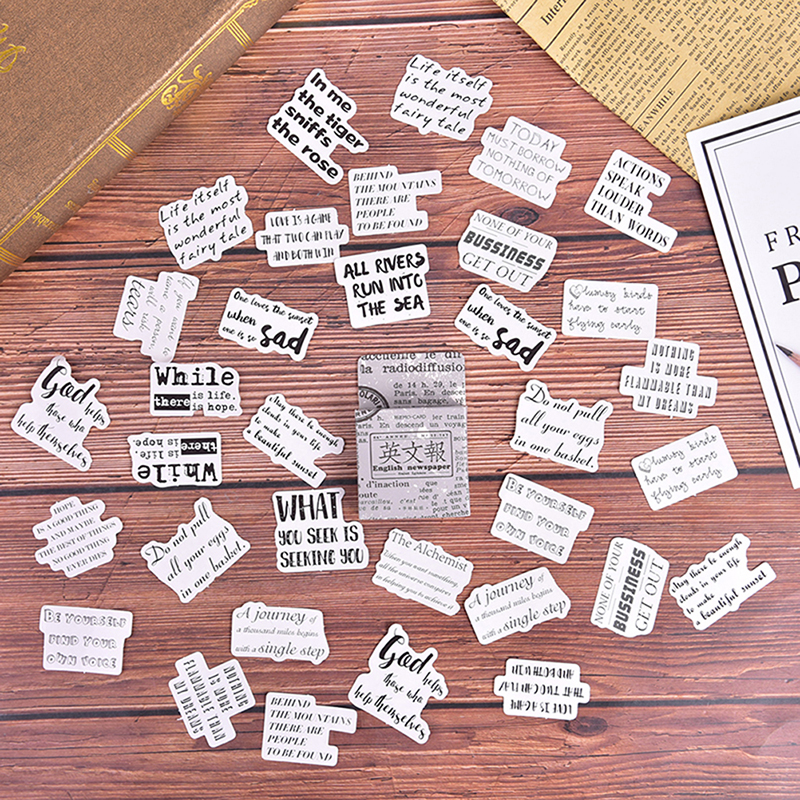 In me
the tiger
sniffs
the rose
Life itself
is the most
wonderful
fairy tale
TODAY
MUST BORROW
NOTHING OF
TOMORROW
ACTIONS
SPEAK
LOUDER
THAN WORDS
BEHIND
THE MOUNTAINS
THERE ARE
PEOPLE
TO BE FOUND
Life itself
is the most
wonderful
fairy tale
LOVE IS A GAME
THAT TWO CAN PLAY
AND BOTH WIN
NONE OF YOUR
BUSSINESS
GET OUT
ALL RIVERS
RUN INTO
THE SEA
If you shed
time a person
will wish
tears
One loves the sunset
when sad
one is so
One loves the sunset
when sad
one is so
lumsy birds
have to start
flying early
NOTHING
IS MORE
FLAMMABLE THAN
MY DREAMS
God helps
those who
help themselves
While
there is life,
there is hope.
While
there is life,
there is hope.
May there be enough
clouds in your life
to make a
beautiful sunset
accueille le di
la radiodiffusio
de 14 h. 29, le
Paris. En desce
sans bagage. V
英文報
English newspaper
d'inaction
Do not pull
all your eggs
in one basket.
lumsy birds
have to start
flying early
HOPE
IS A GOOD THING
AND MAYBE
THE BEST OF THINGS
NO GOOD THING
EVER DIES
Do not pull
all your eggs
in one basket.
WHAT
YOU SEEK IS
SEEKING YOU
BE YOURSELF
FIND YOUR
OWN VOICE
The Alchemist
When you want something,
all the universe conspires
in helping you to achieve it
A journey of
a thousand miles begins
with a single step
NONE OF YOUR
BUSSINESS
GET OUT
May there be enough
clouds in your life
to make a
beautiful sunset
BE YOURSELF
FIND YOUR
OWN VOICE
A journey of
a thousand miles begins
with a single step
God helps
those who
help themselves
NOTHING
IS MORE
FLAMMABLE THAN
MY DREAMS
BEHIND
THE MOUNTAINS
THERE ARE
PEOPLE
TO BE FOUND
LOVE IS A GAME
THAT TWO CAN PLAY
AND BOTH WIN
FR
P